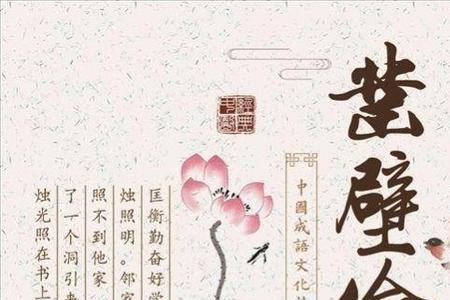 凿壁偷
中國成語文化
匡衡勤奋好学
烛照明。邻家
照不到他家
了一个洞引来
烛光照在书上